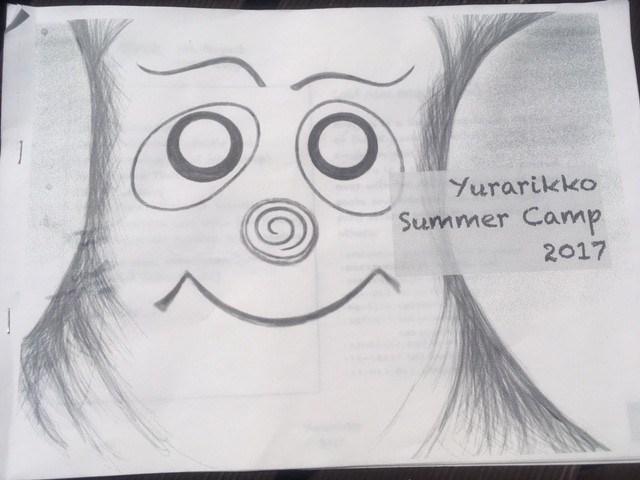 Yurarikko
Summer Camp
2017